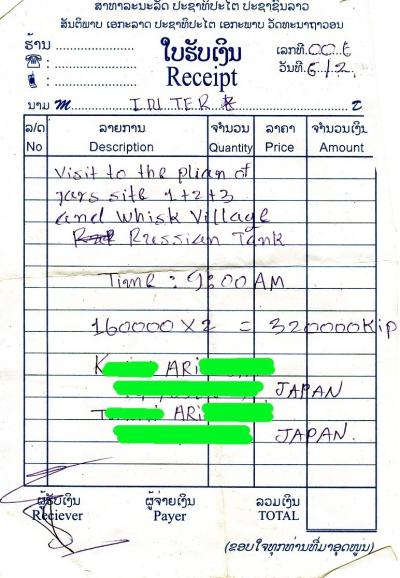 ສາທາລະນະລັດ ປະຊາທິປະໄຕ ປະຊາຊົນລາວ
ສັນຕິພາບ ເອກະລາດ ປະຊາທິປະໄຕ ເອກະພາບ ວັດທະນາຖາວອນ
ຮ້ານ ໃບຮັບເງິນ ເລກທີ. 006
Receipt ວັນທີ. 6/2
ນາມ M INTER
ລ/ດ ລາຍການ ຈຳນວນ ລາຄາ ຈຳນວນເງິນ
No Description Quantity Price Amount
Visit to the plian of
jars site 1+2+3
and whisk village
Russian Tank
Time : 9:00 AM
160000 X 2 = 320000 Kip
K ARi
JAPAN
T ARi
JAPAN.
ຜູ້ຮັບເງິນ ຜູ້ຈ່າຍເງິນ ລວມເງິນ
Reciever Payer TOTAL
(ຂອບໃຈທຸກທ່ານທີ່ມາອຸດໜູນ)